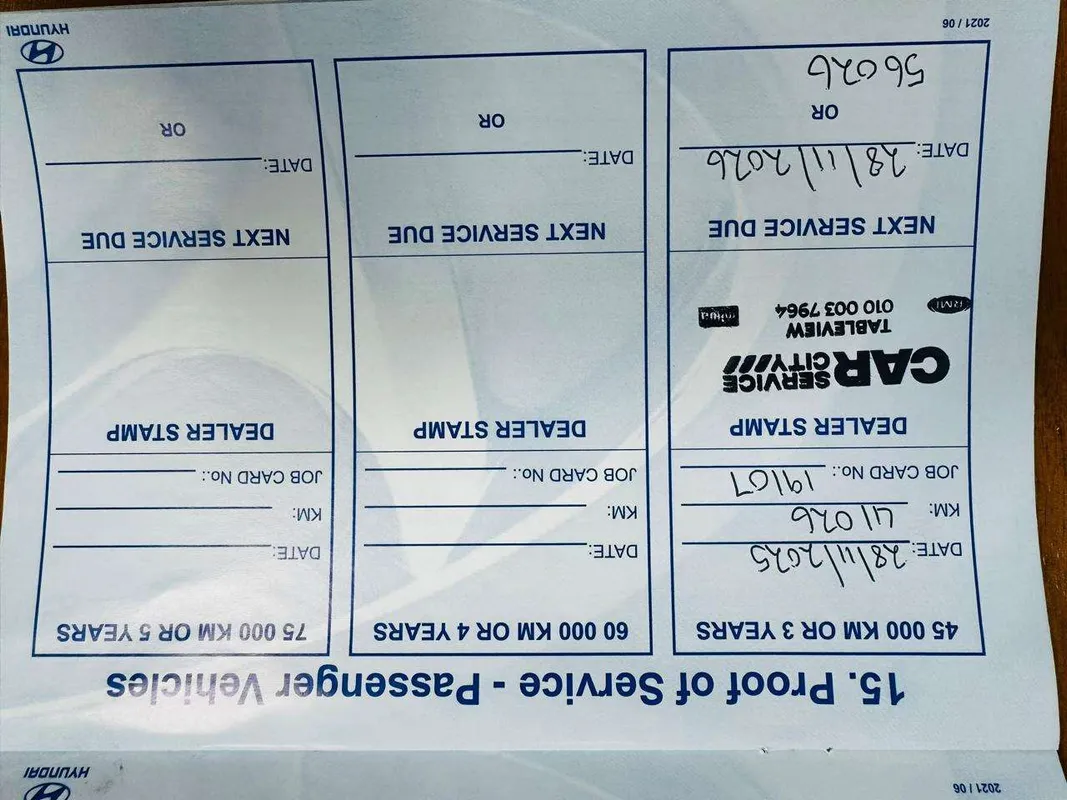 2021 / 06
HYUNDAI
15. Proof of Service - Passenger Vehicles
45 000 KM OR 3 YEARS
DATE: 28/11/2025
KM: 41026
JOB CARD No.: 19107
DEALER STAMP
CAR SERVICE CITY
TABLEVIEW
010 003 7964
RMI
NEXT SERVICE DUE
DATE: 28/11/2026
OR
56026
60 000 KM OR 4 YEARS
DATE:
KM:
JOB CARD No.:
DEALER STAMP
NEXT SERVICE DUE
DATE:
OR
75 000 KM OR 5 YEARS
DATE:
KM:
JOB CARD No.:
DEALER STAMP
NEXT SERVICE DUE
DATE:
OR
2021 / 06
HYUNDAI